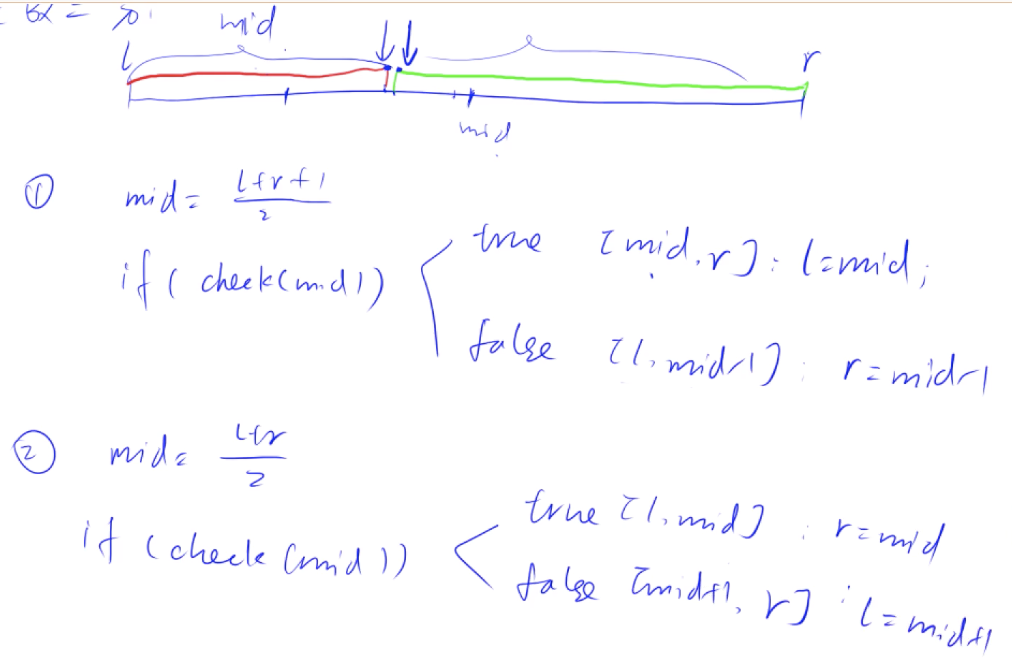 mid
l r
mid
① mid = l+r+1
2
if ( check(mid)) true [mid, r] : l=mid;
false [l, mid-1] : r=mid-1
② mid = l+r
2
if (check (mid)) true [l, mid] : r=mid
false [mid+1, r] : l=mid+1